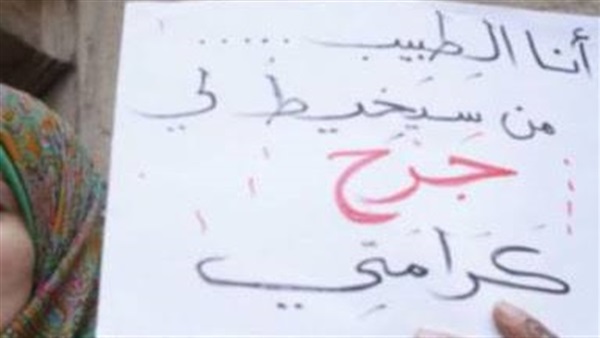 أنا الطبيب .....
من سيخيط لي
جَرَح
كَرَامَتِي